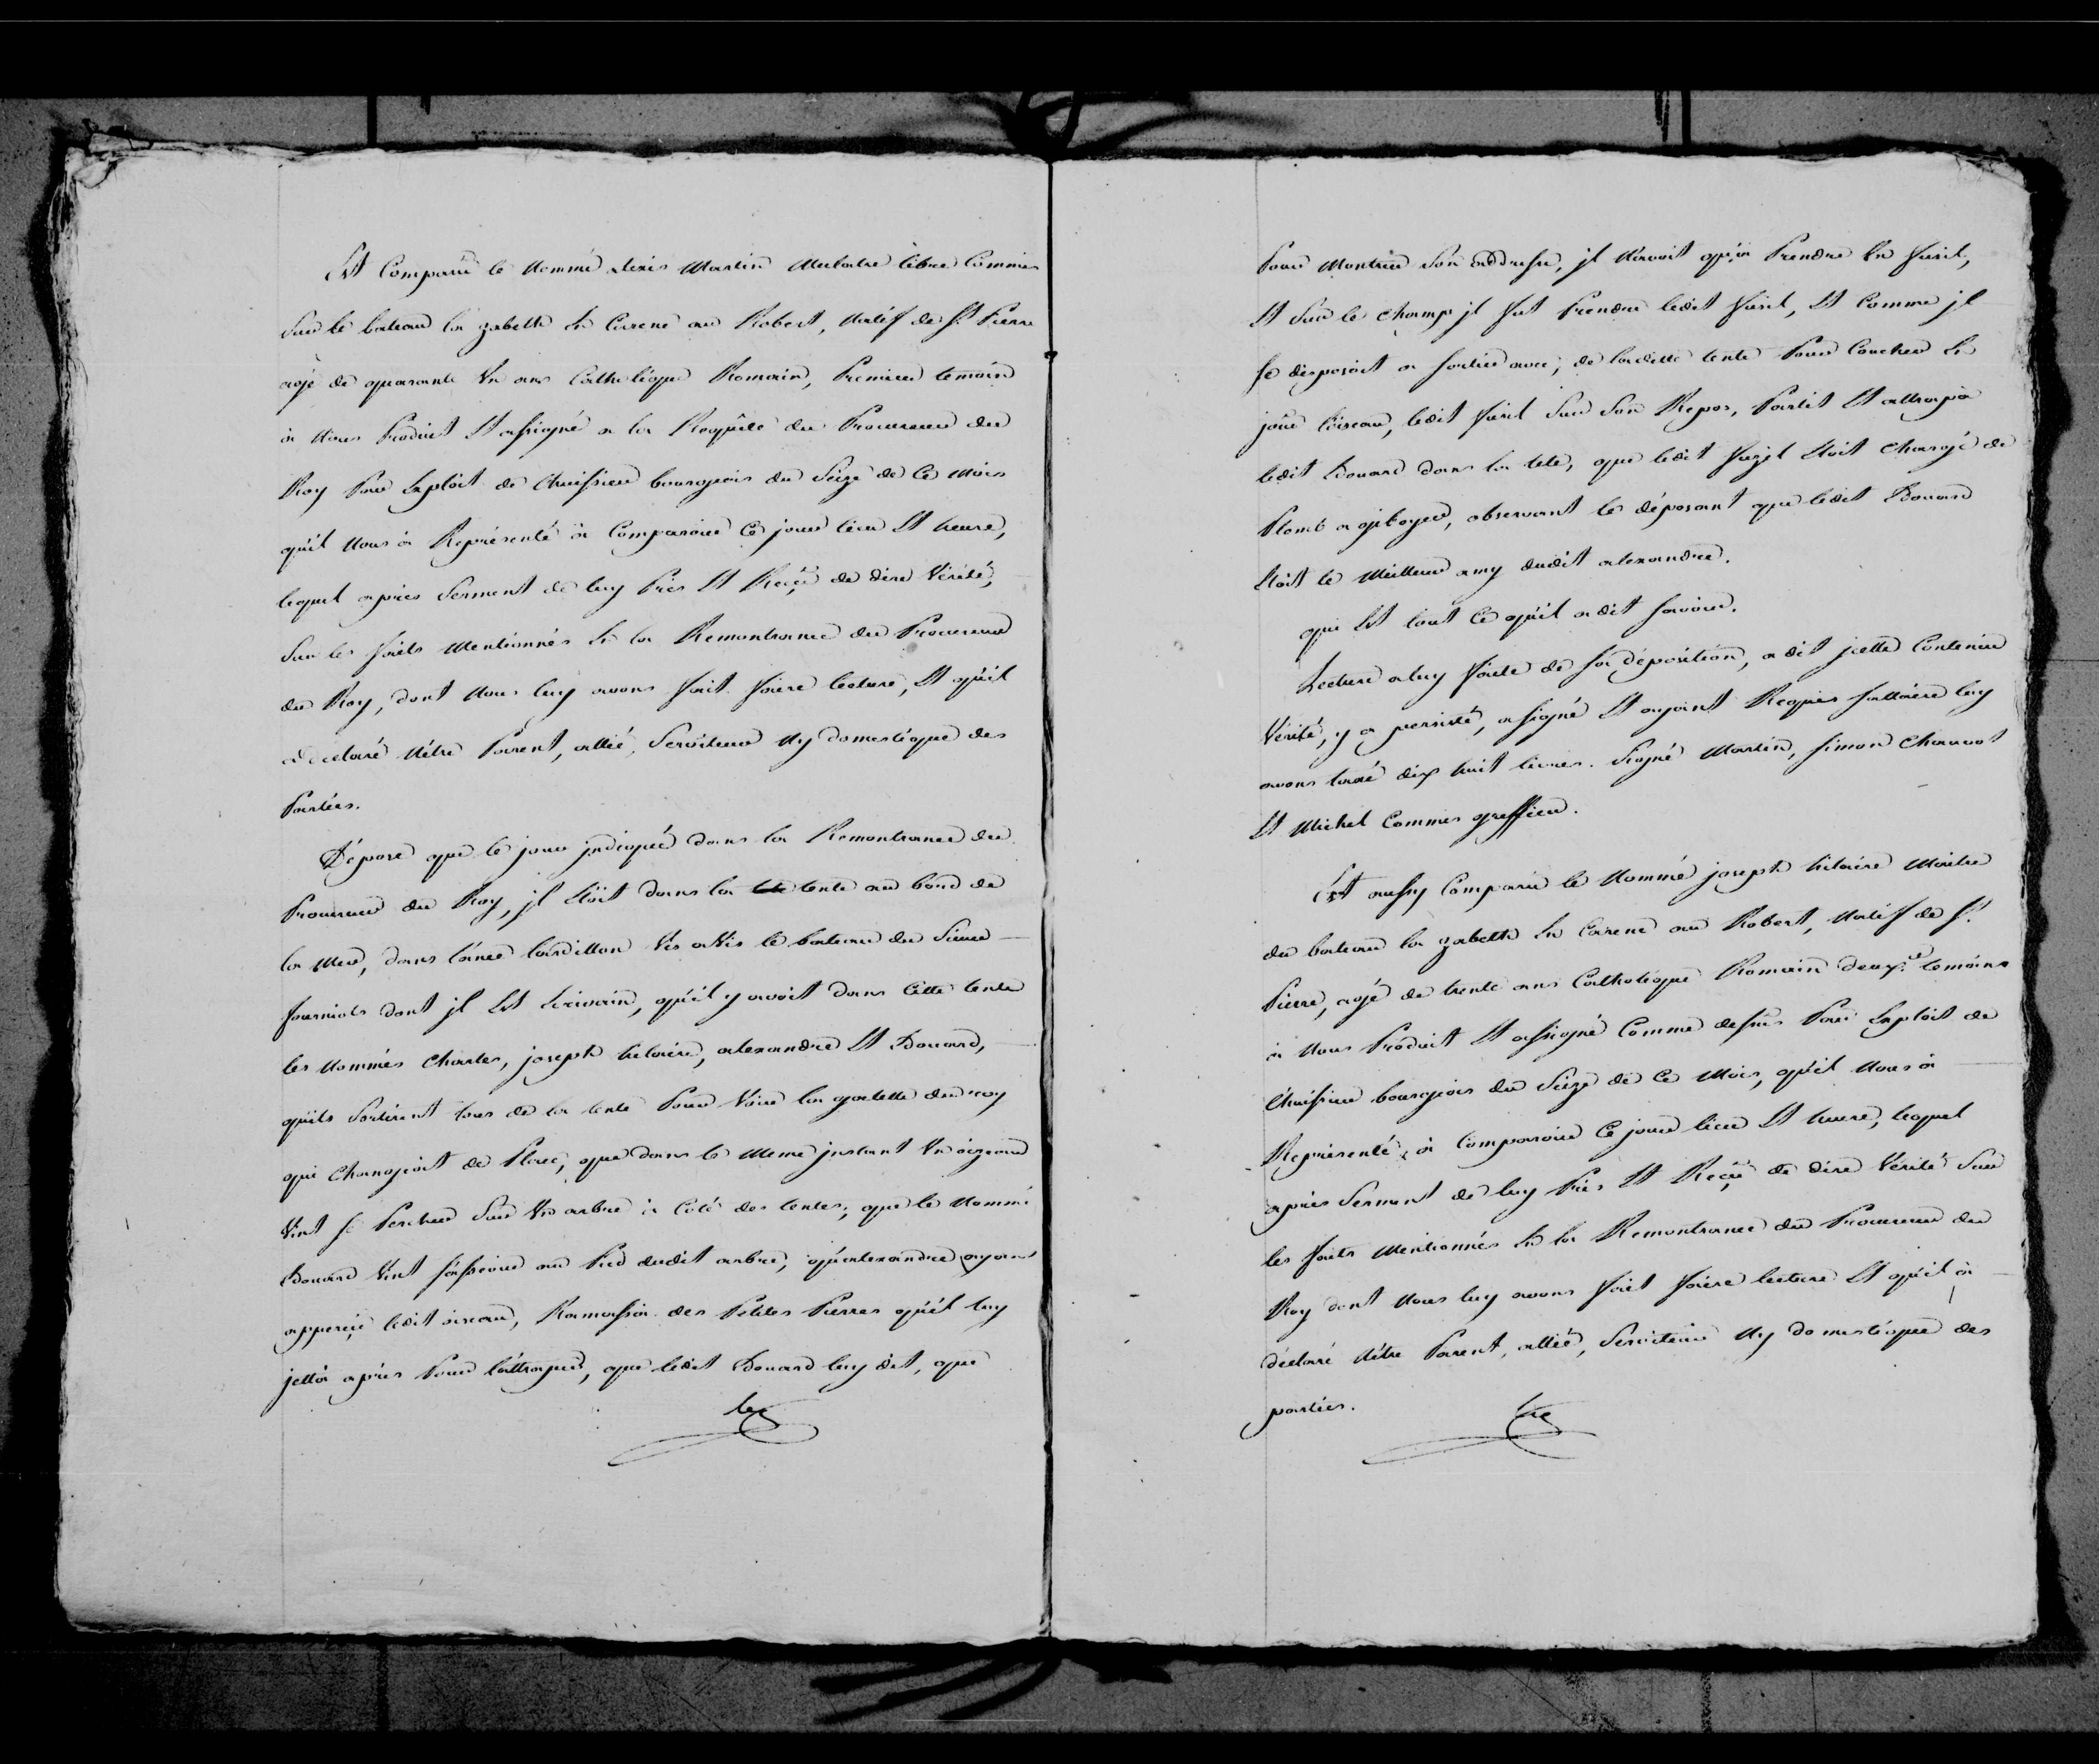 Est Comparü le Nommé alexis Martin Mulatre libre Commis
Sur le bateau la zabeth En Carene au Robert, Natif de St. Pierre
agé de quarante Un ans Catholique Romain, Premier temoin
à Nous Produit Et assigné a la Requête du Procureur du
Roy Par Exploit de l'huissier bourgeois du Seize de Ce Mois
qu'il Nous à Représenté à Comparoir Ce jour lieu Et heure,
lequel après Serment de luy Pris Et Reçü de dire Vérité,
Sur les faits Mentionnés En la Remontrance du Procureur
du Roy, dont Nous luy avons fait faire lecture, Et qu'il
a declaré N'être Parent, allié, Serviteur Ny domestique des
Parties.
Dépose que le jour jndiqué dans la Remontrance du
Procureur du Roy, jl Etoit dans la tente au bord de
la Mer, dans l'ance lardillon Vis aVis le bateau du Sieur
fourniols dont jl Est Ecrivain, qu'il y avoit dans Cette tente
les Nommés Charles, joseph hilaire, alexandre Et Edouard,
qu'ils Sortirent tous de la tente Pour Voir la galette du roy
qui Changeoit de Place, que dans le Meme jnstant Un oizeau
Vint se Percher Sur Un arbre à Côté des tentes; que le Nommé
Edouard Vint s'asseoir au Pied dudit arbre, qu'alexandre ayant
apperçü ledit oiseau, Ramassa des Petites Pierres qu'il luy
jetta après Pour l'attraper, que ledit Edouard luy dit, que
Pour Montrer Son addresse, jl N'avoit qu'à Prendre Un fusil,
Et Sur le Champ jl fut Prendre ledit fusil, Et Comme jl
se disposoit a sortir avec; de laditte tente Pour Coucher En
joüe l'oiseau, ledit fusil Sur Son Repos, Partit Et attrapa
ledit Edouard dans la tete, que ledit fuzil Etoit Chargé de
Plomb a giboyer, observant le déposant que ledit Edouard
Etoit le Meilleur amy dudit alexandre.
qui Est tout Ce qu'il a dit savoir.
Lecture a luy faite de sa déposition, a dit jcelle Contenir
Vérité, y a persisté, a signé Et ayant Requis sallaire luy
avons taxé dix huit livres. Signé Martin, simon Chauvot
Et Michel Commis greffier.
Est aussy Comparu le Nommé joseph hilaire Maitre
du bateau la zabeth En Carene au Robert, Natif de St.
Pierre, agé de trente ans Catholique Romain deuxe. temoins
à Nous Produit Et assigné Comme dessus Par Exploit de
l'huissier bourgeois du Seize de Ce Mois, qu'il Nous à
Représenté, à Comparoir Ce jour lieu Et heure, lequel
après Serment de luy Pris Et Reçü de dire Vérité Sur
les faits Mentionnés En la Remontrance du Procureur du
Roy dont Nous luy avons fait faire lecture Et qu'il à
déclaré N'être Parent, allié, Serviteur Ny domestique des
parties.